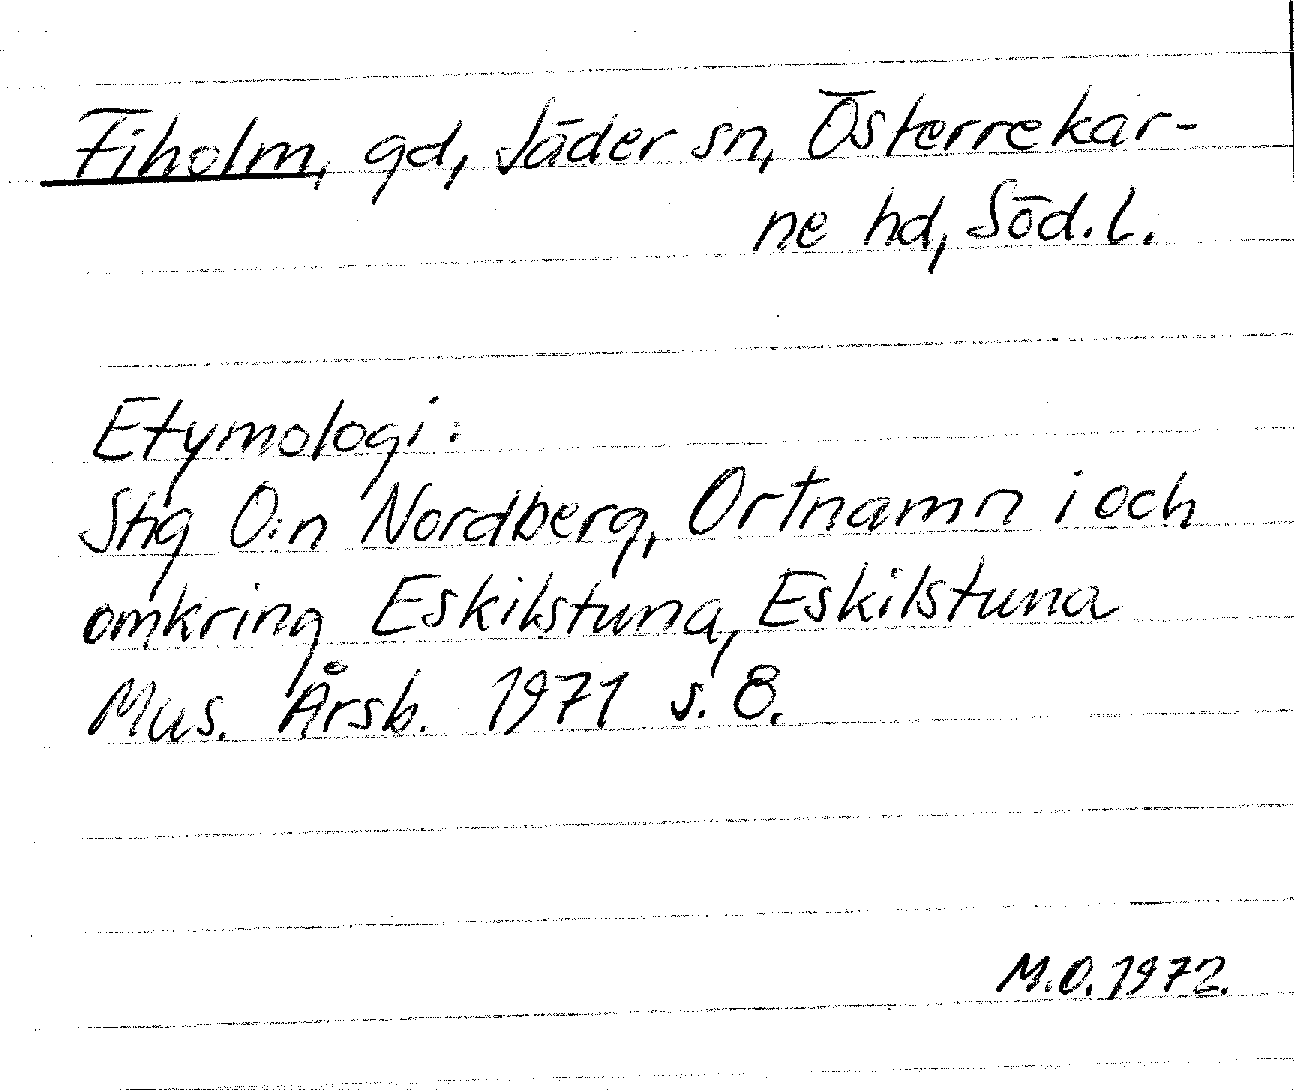 Fiholm, gd, Jäder sn, Österrekar-
ne hd, Söd. l.
Etymologi:
Stig O:n Nordberg, Ortnamn i och
omkring Eskilstuna, Eskilstuna
Mus. Årsb. 1971 s. 8.
M.O. 1972.